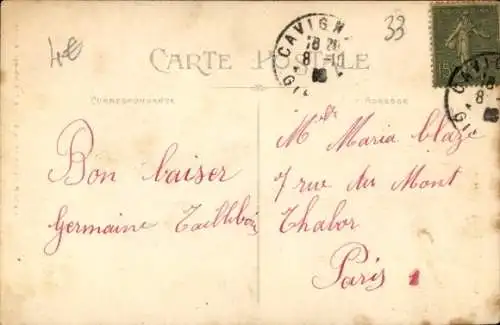 4€
33
CARTE POSTALE
CAVIGN
18
8
GI
CAVIG
18
8
GI
15
CORRESPONDANCE
ADRESSE
Bon baiser
Germaine Taillebois
Mlle Maria Claze
7 rue du Mont
Thabor
Paris 1